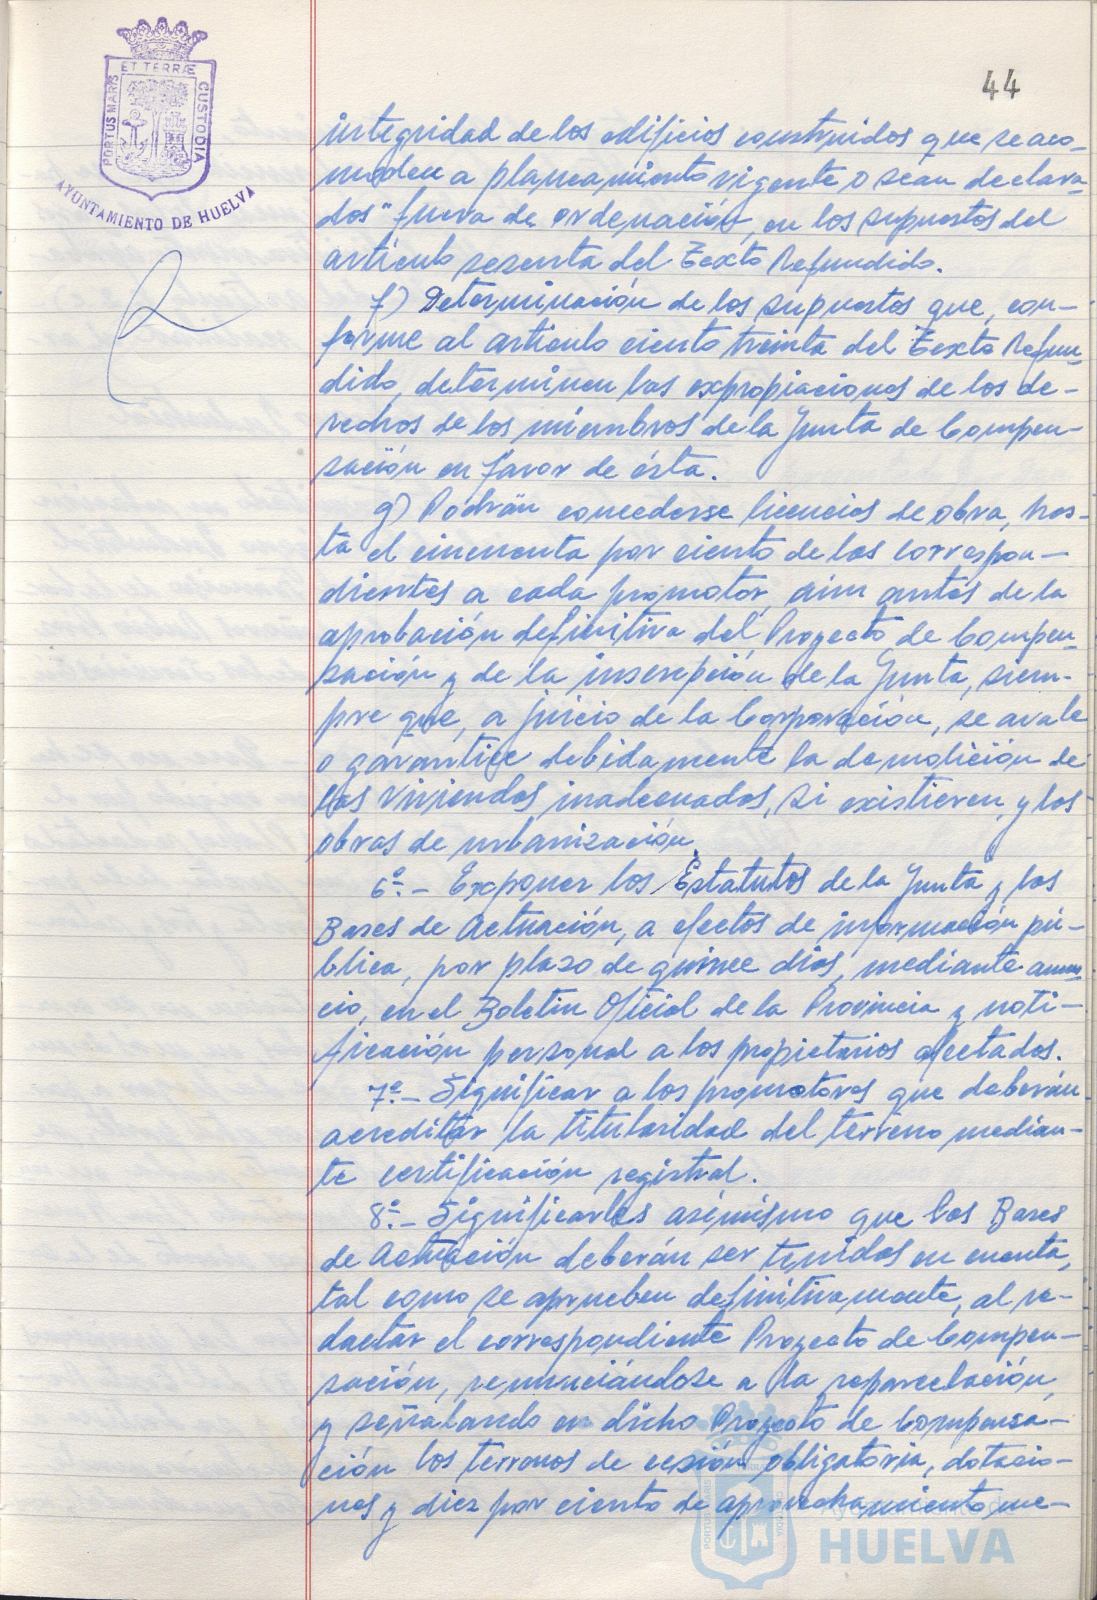 ET TERRÆ
PORTUS MARIS
CUSTODIA
AYUNTAMIENTO DE HUELVA
44
integridad de los edificios construidos que se aco-
moden a planeamiento vigente o sean declara-
dos "fuera de ordenación, en los supuestos del
artículo sesenta del Texto Refundido.
f) Determinación de los supuestos que, con-
forme al artículo ciento treinta del Texto Refun-
dido, determinen las expropiaciones de los de-
rechos de los miembros de la Junta de Compen-
sación en favor de ésta.
g) Podrán concederse licencias de obra, has-
ta el cincuenta por ciento de las correspon-
dientes a cada promotor, aun antes de la
aprobación definitiva del Proyecto de Compen-
sación y de la inscripción de la Junta, siem-
pre que, a juicio de la Corporación, se avale
o garantice debidamente la demolición de
las viviendas inadecuadas, si existieren, y las
obras de urbanización.
6º.- Exponer los Estatutos de la Junta y las
Bases de Actuación, a efectos de información pú-
blica, por plazo de quince días, mediante anun-
cio, en el Boletín Oficial de la Provincia y noti-
ficación personal a los propietarios afectados.
7º.- Significar a los promotores que deberán
acreditar la titularidad del terreno median-
te certificación registral.
8º.- Significarles asimismo que las Bases
de Actuación deberán ser tenidas en cuenta,
tal como se aprueben definitivamente, al re-
dactar el correspondiente Proyecto de Compen-
sación, renunciándose a la reparcelación,
y señalando en dicho Proyecto de Compensa-
ción los terrenos de cesión obligatoria, dotacio-
nes y diez por ciento de aprovechamiento me-
HUELVA